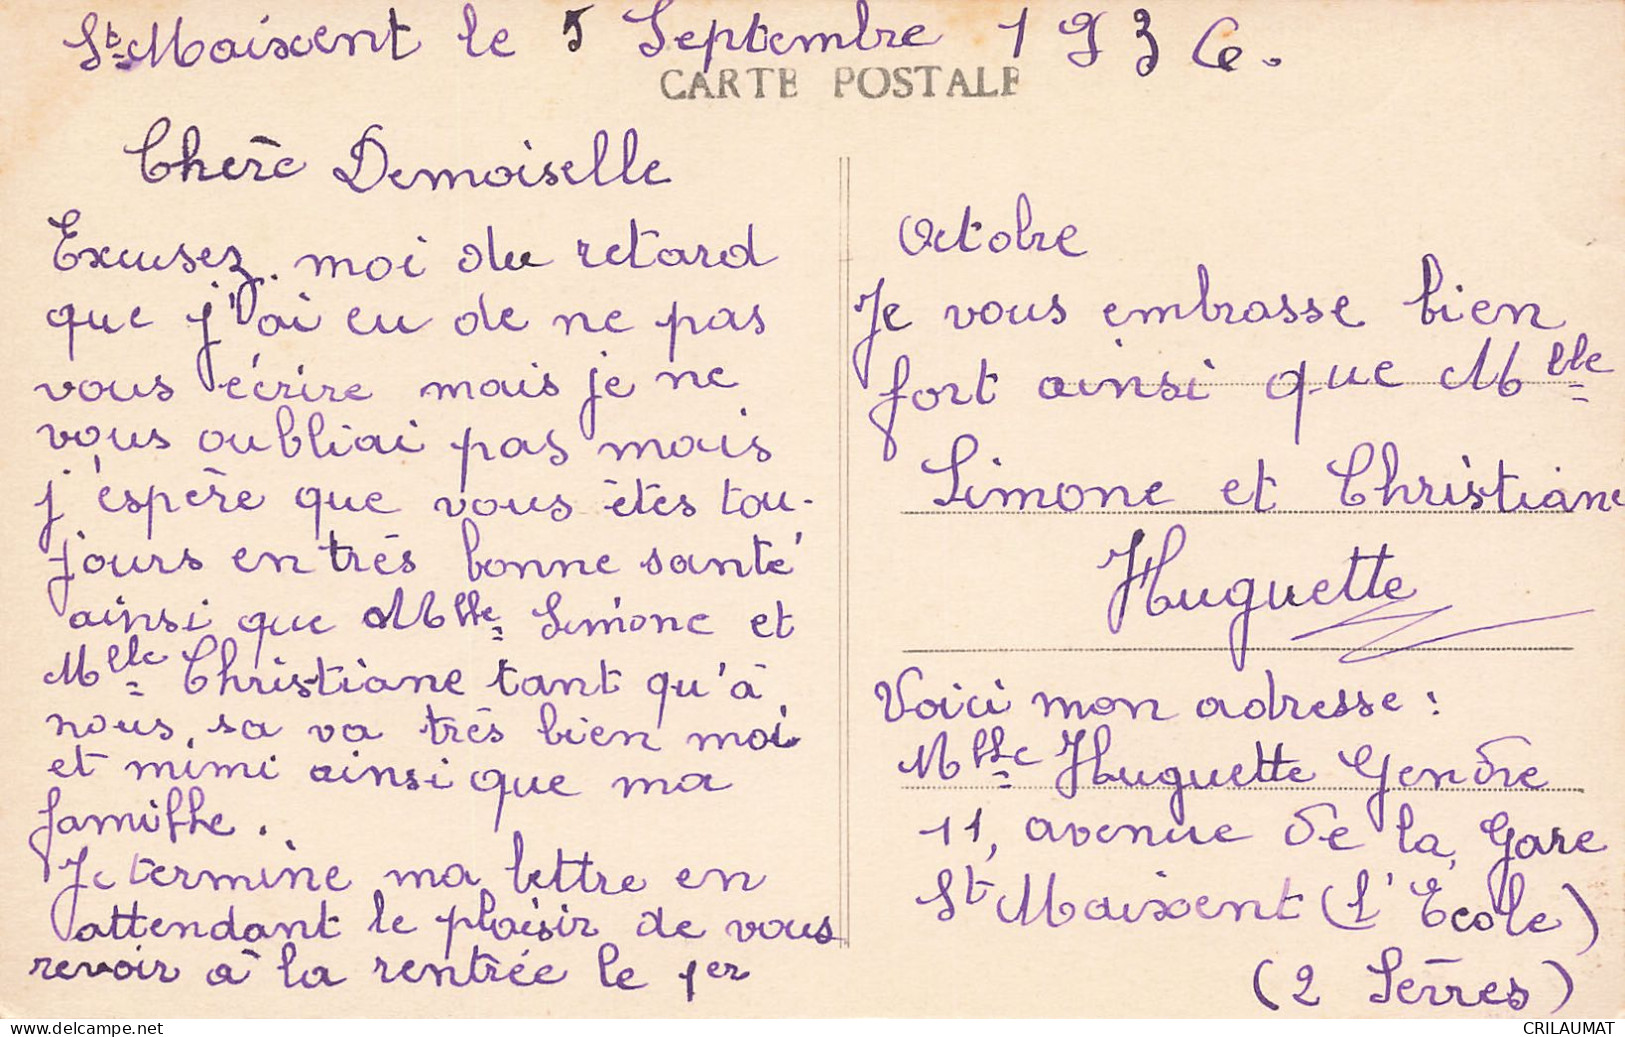 St-Maixent le 5 Septembre 1936.
CARTE POSTALE
Chère Demoiselle
Excusez-moi du retard
que j'ai eu de ne pas
vous écrire mais je ne
vous oubliai pas mais
j'espère que vous êtes tou-
jours en très bonne santé
ainsi que Mlle Simone et
Mlle Christiane tant qu'à
nous, sa va très bien moi
et mimi ainsi que ma
famille.
Je termine ma lettre en
attendant le plaisir de vous
revoir à la rentrée le 1er
Octobre
Je vous embrasse bien
fort ainsi que Mlle
Simone et Christiane
Huguette
Voici mon adresse :
Mlle Huguette Gendre
11, avenue de la Gare
St Maixent (L'Ecole)
(2 Sèrres)
www.delcampe.net
CRILAUMAT